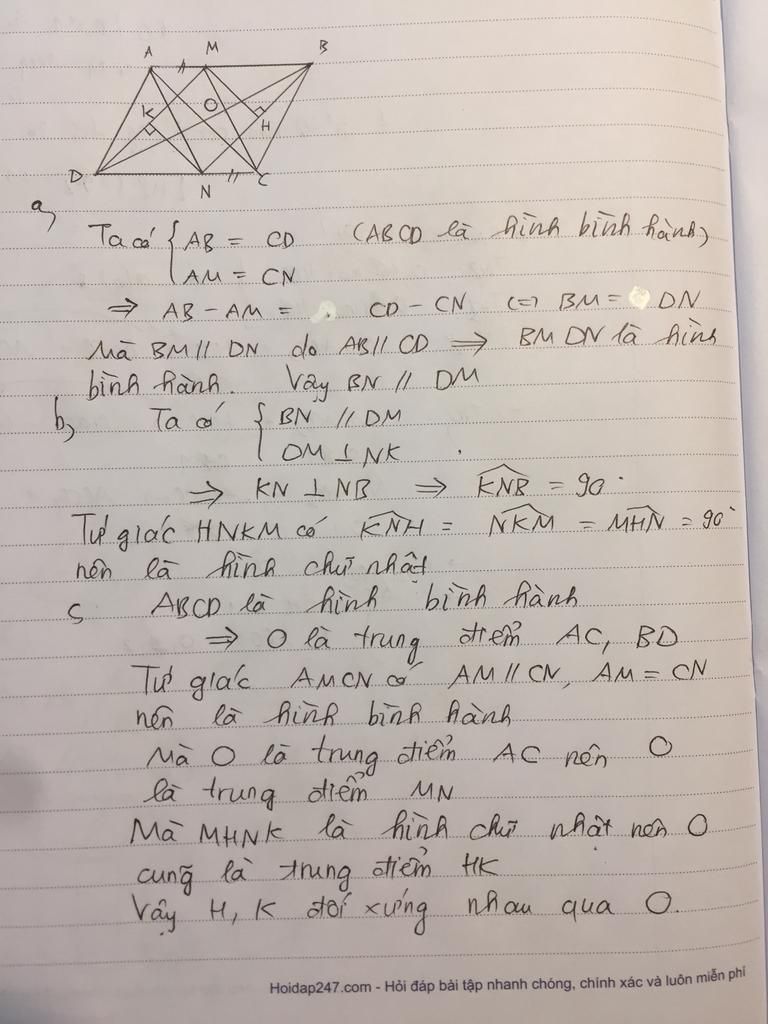 A M B
K O H
D N C
a,
Ta có { AB = CD (ABCD là hình bình hành)
AM = CN
=> AB - AM = CD - CN (=) BM = DN
Mà BM // DN do AB // CD => BMDN là hình
bình hành. Vậy BN // DM
b, Ta có { BN // DM
DM ⊥ NK
=> KN ⊥ NB => KNB = 90°
Tứ giác HNKM có KNH = NKM = MHN = 90°
nên là hình chữ nhật
c ABCD là hình bình hành
=> O là trung điểm AC, BD
Tứ giác AMCN có AM // CN, AM = CN
nên là hình bình hành
Mà O là trung điểm AC nên O
là trung điểm MN
Mà MHNK là hình chữ nhật nên O
cũng là trung điểm HK
Vậy H, K đối xứng nhau qua O.
Hoidap247.com - Hỏi đáp bài tập nhanh chóng, chính xác và luôn miễn phí